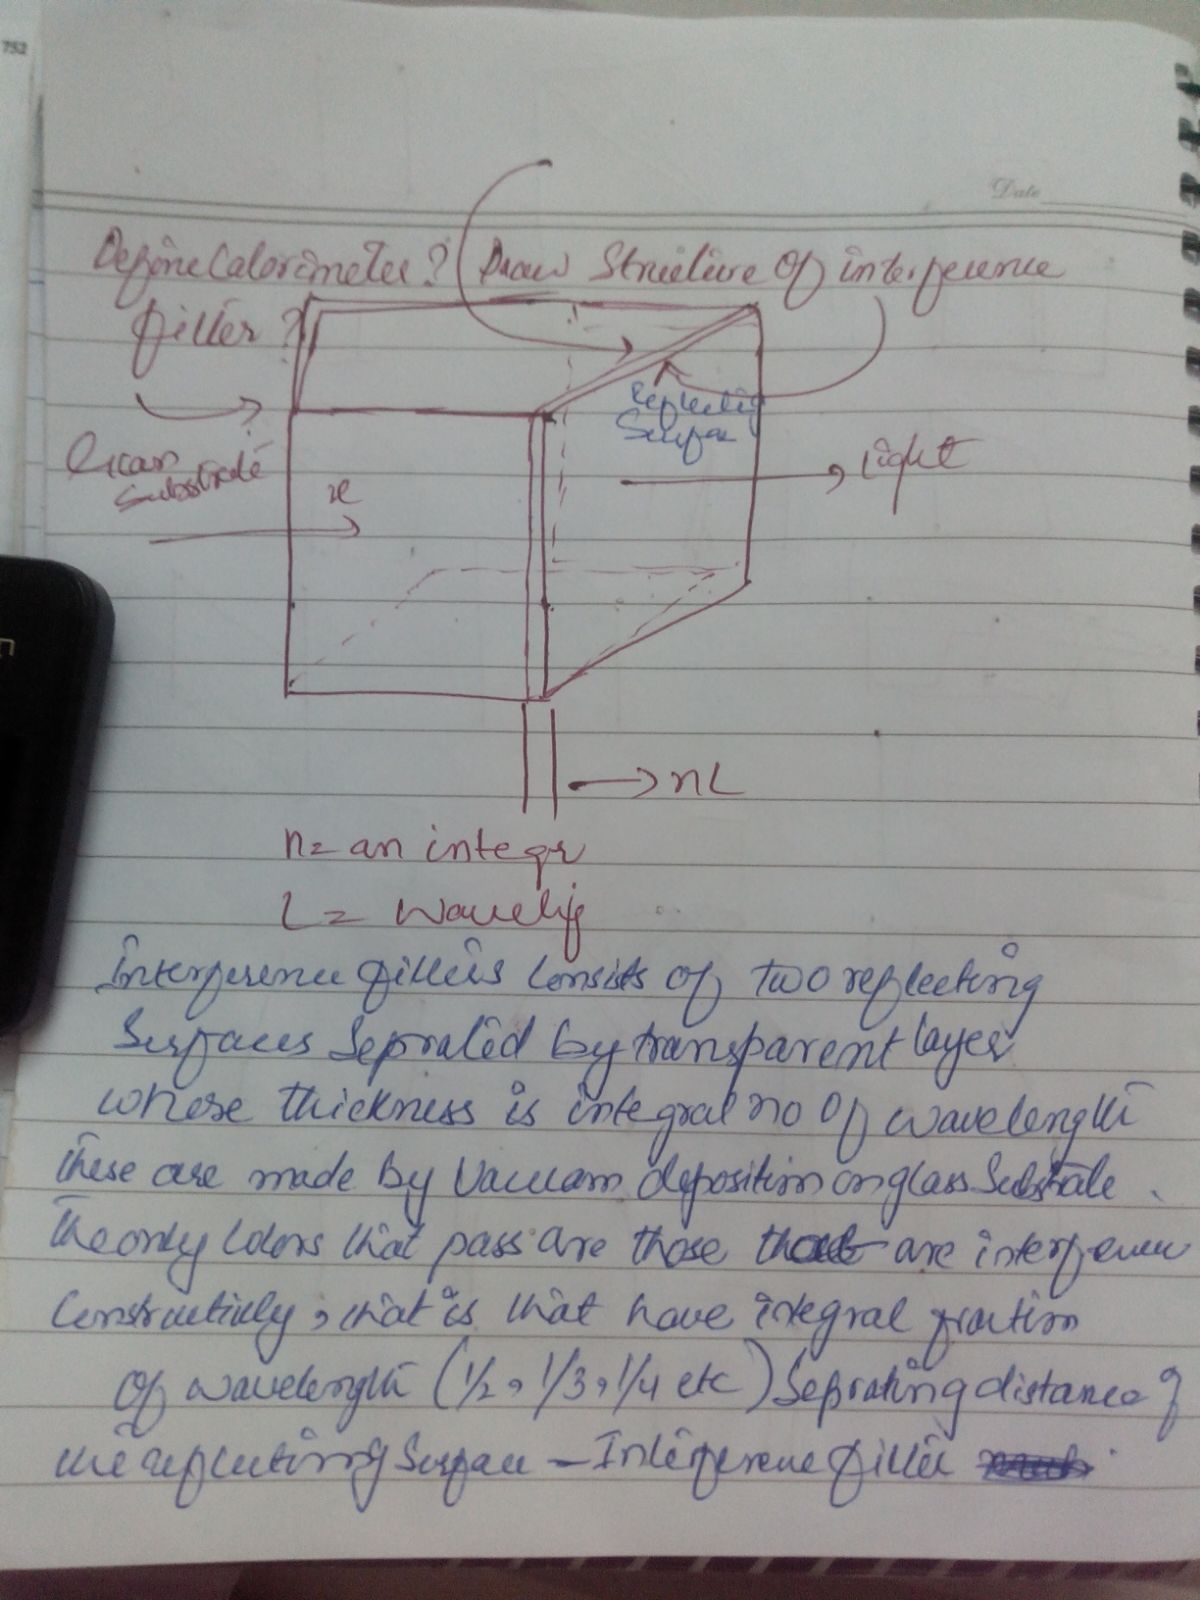 752
Date
Define Calorimeter? Draw Structure Of interference
filter?
Reflecting
Surfac
Light
substrate
x
nL
n= an integr
L =
Interference filters Consists of two reflecting
Surfaces Seprated by transparent layer
whose thickness is integral no Of wavelength
These are made by Vacuam deposition on glass Substrate.
The only Colors that pass are those are interference
Constructively, that is that have integral fraction
Of wavelength (1/2, 1/3, 1/4 etc) Seprating distance of
the reflecting Surface - Interference filter